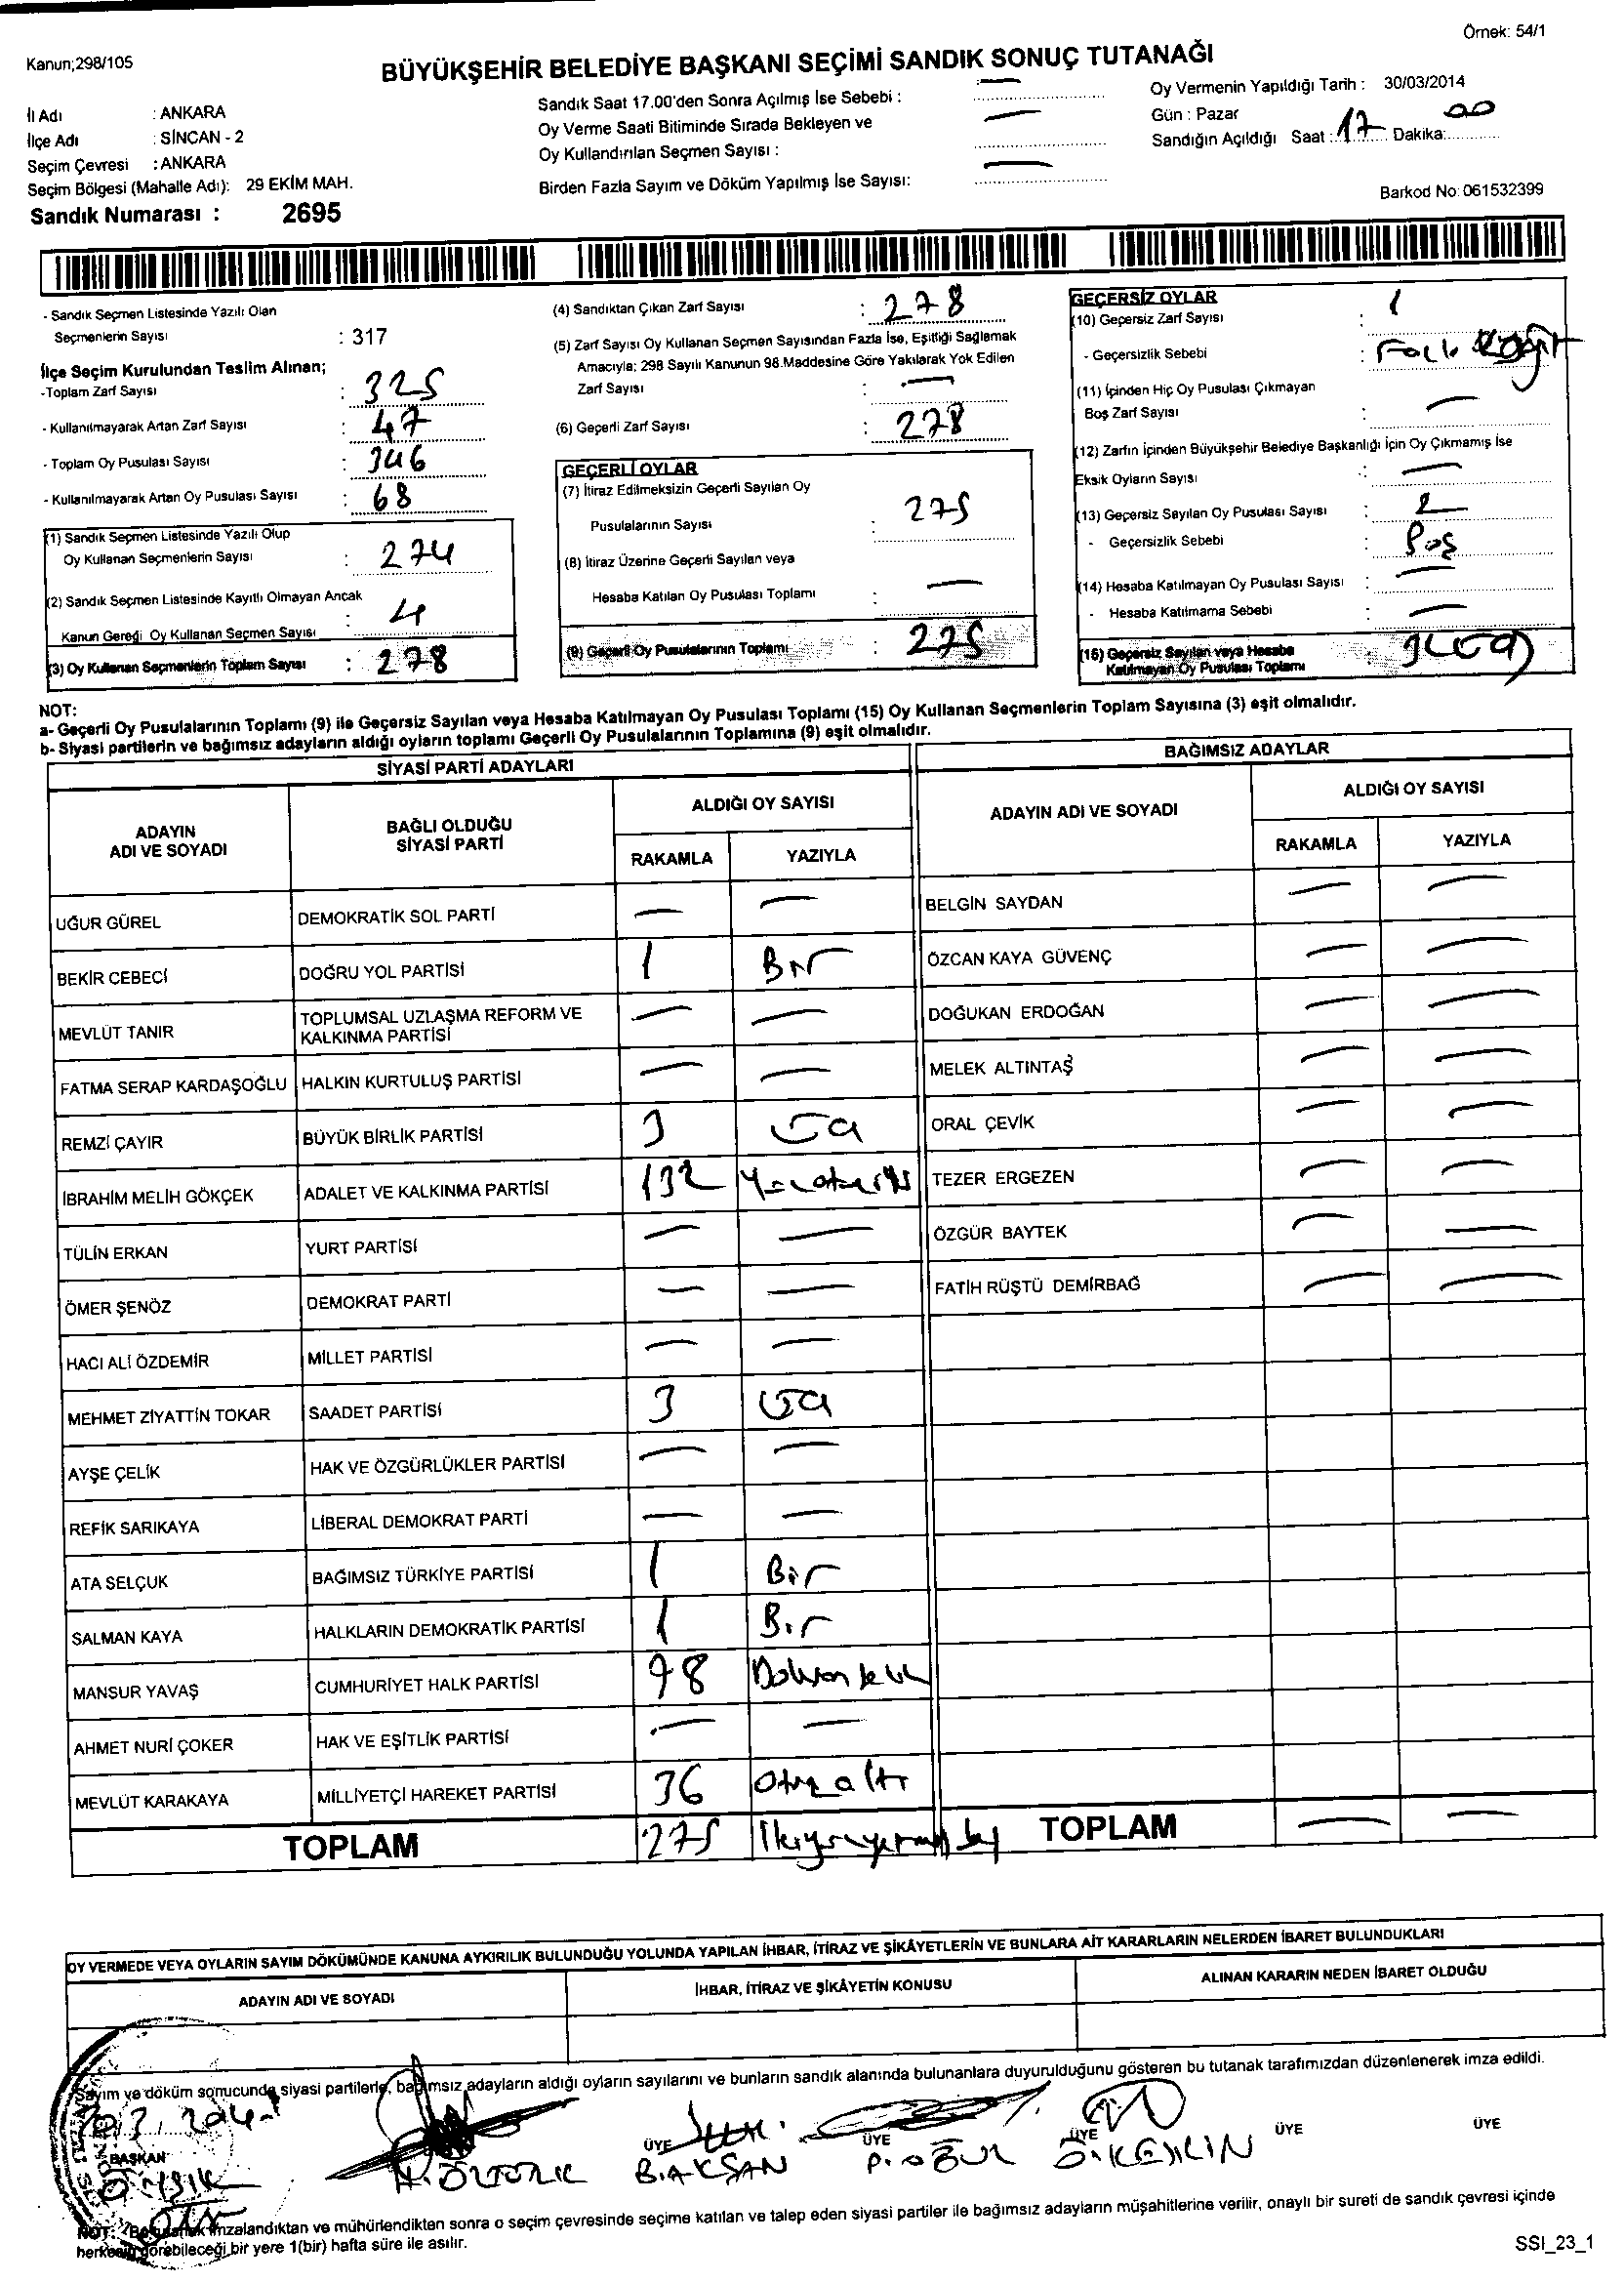 Örnek: 54/1
Kanun;298/105
BÜYÜKŞEHİR BELEDİYE BAŞKANI SEÇİMİ SANDIK SONUÇ TUTANAĞI
İl Adı : ANKARA
İlçe Adı : SİNCAN - 2
Seçim Çevresi : ANKARA
Seçim Bölgesi (Mahalle Adı): 29 EKİM MAH.
Sandık Numarası : 2695
Sandık Saat 17.00'den Sonra Açılmış İse Sebebi : —
Oy Verme Saati Bitiminde Sırada Bekleyen ve
Oy Kullandırılan Seçmen Sayısı : —
Birden Fazla Sayım ve Döküm Yapılmış İse Sayısı: —
Oy Vermenin Yapıldığı Tarih : 30/03/2014
Gün : Pazar
Sandığın Açıldığı Saat : 17 Dakika: 00
Barkod No: 061532399
- Sandık Seçmen Listesinde Yazılı Olan
Seçmenlerin Sayısı : 317
İlçe Seçim Kurulundan Teslim Alınan;
-Toplam Zarf Sayısı : 325
- Kullanılmayarak Artan Zarf Sayısı : 47
- Toplam Oy Pusulası Sayısı : 346
- Kullanılmayarak Artan Oy Pusulası Sayısı : 68
(1) Sandık Seçmen Listesinde Yazılı Olup
Oy Kullanan Seçmenlerin Sayısı : 274
(2) Sandık Seçmen Listesinde Kayıtlı Olmayan Ancak
Kanun Gereği Oy Kullanan Seçmen Sayısı : 4
(3) Oy Kullanan Seçmenlerin Toplam Sayısı : 278
(4) Sandıktan Çıkan Zarf Sayısı : 278
(5) Zarf Sayısı Oy Kullanan Seçmen Sayısından Fazla İse, Eşitliği Sağlamak
Amacıyla; 298 Sayılı Kanunun 98.Maddesine Göre Yakılarak Yok Edilen
Zarf Sayısı : —
(6) Geçerli Zarf Sayısı : 278
GEÇERLİ OYLAR
(7) İtiraz Edilmeksizin Geçerli Sayılan Oy
Pusulalarının Sayısı : 275
(8) İtiraz Üzerine Geçerli Sayılan veya
Hesaba Katılan Oy Pusulası Toplamı : —
(9) Geçerli Oy Pusulalarının Toplamı : 275
GEÇERSİZ OYLAR
(10) Geçersiz Zarf Sayısı : 1
- Geçersizlik Sebebi :
(11) İçinden Hiç Oy Pusulası Çıkmayan
Boş Zarf Sayısı : —
(12) Zarfın İçinden Büyükşehir Belediye Başkanlığı İçin Oy Çıkmamış İse
Eksik Oyların Sayısı : —
(13) Geçersiz Sayılan Oy Pusulası Sayısı : 2
- Geçersizlik Sebebi : Boş
(14) Hesaba Katılmayan Oy Pusulası Sayısı : —
- Hesaba Katılmama Sebebi : —
(15) Geçersiz Sayılan veya Hesaba
Katılmayan Oy Pusulası Toplamı : 3(üç)
NOT:
a- Geçerli Oy Pusulalarının Toplamı (9) ile Geçersiz Sayılan veya Hesaba Katılmayan Oy Pusulası Toplamı (15) Oy Kullanan Seçmenlerin Toplam Sayısına (3) eşit olmalıdır.
b- Siyasi partilerin ve bağımsız adayların aldığı oyların toplamı Geçerli Oy Pusulalarının Toplamına (9) eşit olmalıdır.
SİYASİ PARTİ ADAYLARI
ADAYIN ADI VE SOYADI BAĞLI OLDUĞU SİYASİ PARTİ ALDIĞI OY SAYISI
RAKAMLA YAZIYLA
UĞUR GÜREL DEMOKRATİK SOL PARTİ — —
BEKİR CEBECİ DOĞRU YOL PARTİSİ 1 Bir
MEVLÜT TANIR TOPLUMSAL UZLAŞMA REFORM VE KALKINMA PARTİSİ — —
FATMA SERAP KARDAŞOĞLU HALKIN KURTULUŞ PARTİSİ — —
REMZİ ÇAYIR BÜYÜK BİRLİK PARTİSİ 3 üç
İBRAHİM MELİH GÖKÇEK ADALET VE KALKINMA PARTİSİ 132 Yüzotuziki
TÜLİN ERKAN YURT PARTİSİ — —
ÖMER ŞENÖZ DEMOKRAT PARTİ — —
HACI ALİ ÖZDEMİR MİLLET PARTİSİ — —
MEHMET ZİYATTİN TOKAR SAADET PARTİSİ 3 üç
AYŞE ÇELİK HAK VE ÖZGÜRLÜKLER PARTİSİ — —
REFİK SARIKAYA LİBERAL DEMOKRAT PARTİ — —
ATA SELÇUK BAĞIMSIZ TÜRKİYE PARTİSİ 1 Bir
SALMAN KAYA HALKLARIN DEMOKRATİK PARTİSİ 1 Bir
MANSUR YAVAŞ CUMHURİYET HALK PARTİSİ 98 Doksan sekiz
AHMET NURİ ÇOKER HAK VE EŞİTLİK PARTİSİ — —
MEVLÜT KARAKAYA MİLLİYETÇİ HAREKET PARTİSİ 36 Otuz altı
TOPLAM 275 İkiyüzyetmiş beş
BAĞIMSIZ ADAYLAR
ADAYIN ADI VE SOYADI ALDIĞI OY SAYISI
RAKAMLA YAZIYLA
BELGİN SAYDAN — —
ÖZCAN KAYA GÜVENÇ — —
DOĞUKAN ERDOĞAN — —
MELEK ALTINTAŞ — —
ORAL ÇEVİK — —
TEZER ERGEZEN — —
ÖZGÜR BAYTEK — —
FATİH RÜŞTÜ DEMİRBAĞ — —
TOPLAM — —
OY VERMEDE VEYA OYLARIN SAYIM DÖKÜMÜNDE KANUNA AYKIRILIK BULUNDUĞU YOLUNDA YAPILAN İHBAR, İTİRAZ VE ŞİKÂYETLERİN VE BUNLARA AİT KARARLARIN NELERDEN İBARET BULUNDUKLARI
ADAYIN ADI VE SOYADI İHBAR, İTİRAZ VE ŞİKÂYETİN KONUSU ALINAN KARARIN NEDEN İBARET OLDUĞU
Sayım ve döküm sonucunda siyasi partilerle, bağımsız adayların aldığı oyların sayılarını ve bunların sandık alanında bulunanlara duyurulduğunu gösteren bu tutanak tarafımızdan düzenlenerek imza edildi.
BAŞKAN ÜYE ÜYE ÜYE ÜYE ÜYE
H. ÖZTÜRK B.AKSAN P.OĞUL
NOT: Bu tutanak imzalandıktan ve mühürlendikten sonra o seçim çevresinde seçime katılan ve talep eden siyasi partiler ile bağımsız adayların müşahitlerine verilir, onaylı bir sureti de sandık çevresi içinde
herkesin görebileceği bir yere 1(bir) hafta süre ile asılır.
SSI_23_1